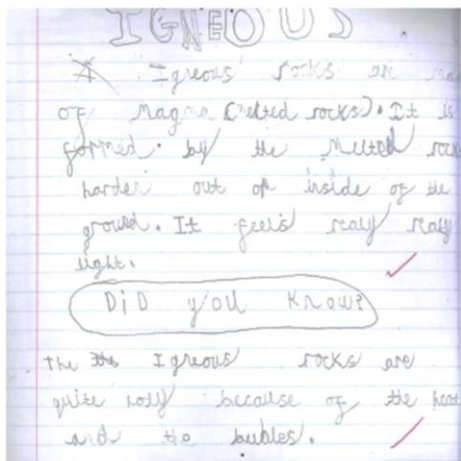 IGNEOUS
Igneous rocks are ma
of magma (melted rocks). It is
formed by the Melted rock
harder out or inside of the
ground. It feels realy realy
light.
DiD you know?
the Igneous rocks are
quite holy because of the heat
and the bubles.